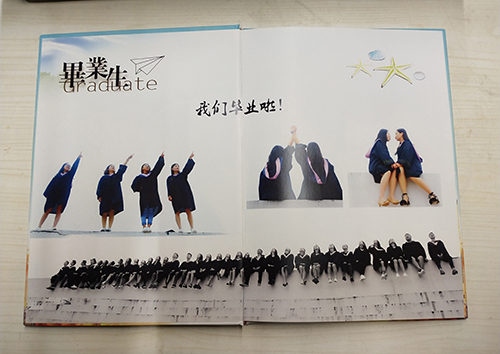 畢業生
Graduate
我们毕业啦!